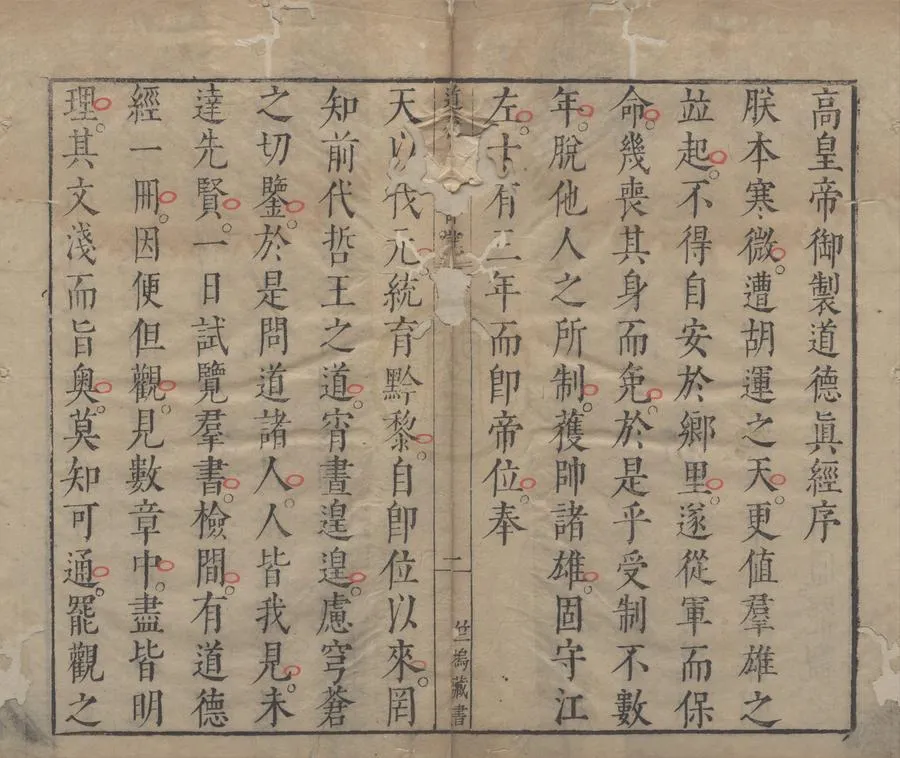 高皇帝御製道德眞經序
朕本寒微。遭胡運之天。更值羣雄之
並起。不得自安於鄉里。遂從軍而保
命。幾喪其身而免。於是乎受制不數
年。脫他人之所制。獲帥諸雄。固守江
左。十有三年而卽帝位。奉
道
二
竺塢藏書
天以代元。統育黔黎。自卽位以來。罔
知前代哲王之道。宵晝遑遑。慮穹蒼
之切鑒。於是問道諸人。人皆我見。未
達先賢。一日試覽羣書。檢間。有道德
經一冊。因便但觀。見數章中。盡皆明
理。其文淺而旨奧。莫知可通。罷觀之